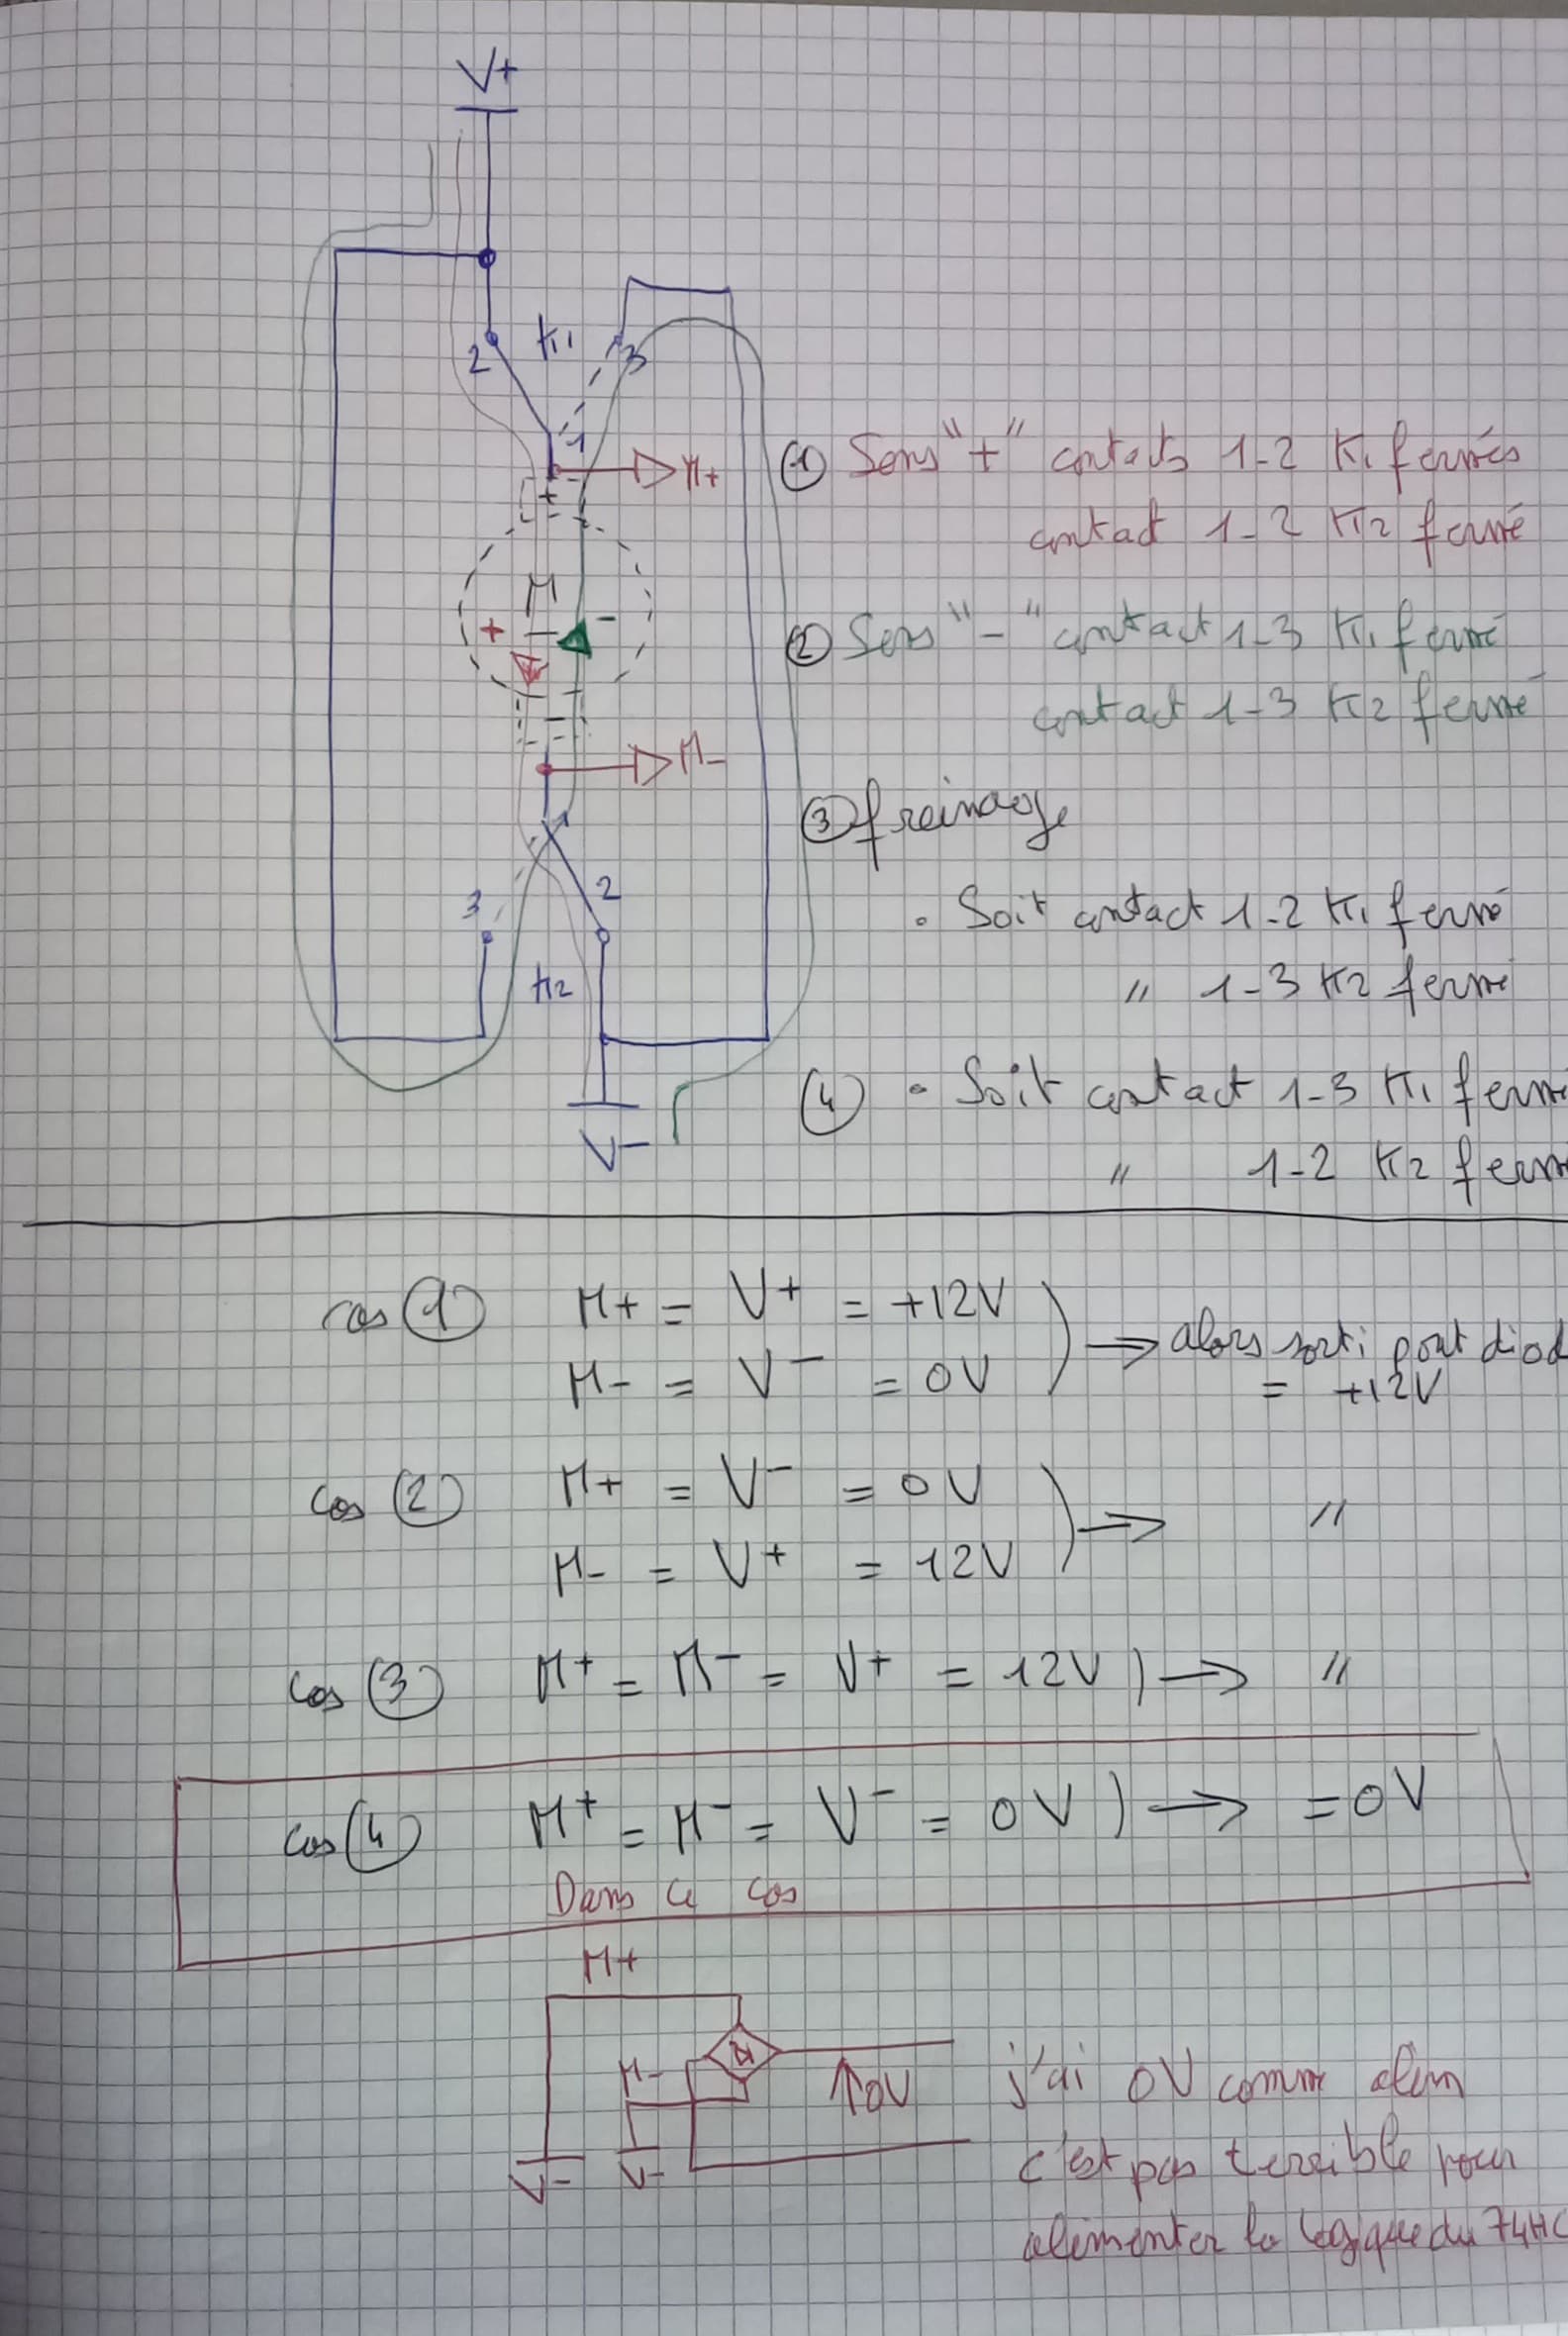 V+
2 K1 3
1
M+
① Sens "+" contacts 1-2 K1 fermés
contact 1-2 K2 fermé
+
M
+ -
② Sens "-" contact 1-3 K1 fermé
contact 1-3 K2 fermé
-
M-
③ freinage
1
3 2
. Soit contact 1-2 K1 fermé
" 1-3 K2 fermé
K2
④ . Soit contact 1-3 K1 fermé
V-
" 1-2 K2 fermé
cas ① M+ = V+ = +12V
M- = V- = 0V
) → alors sorti pont diod
= +12V
cas ② M+ = V- = 0V
M- = V+ = 12V
) → "
cas ③ M+ = M- = V+ = 12V ) → "
cas ④ M+ = M- = V- = 0V ) → = 0V
Dans ce cas
M+
M-
↑0V
V- V-
j'ai 0V comme alim
c'est pas terrible pour
alimenter la logique du 74HC